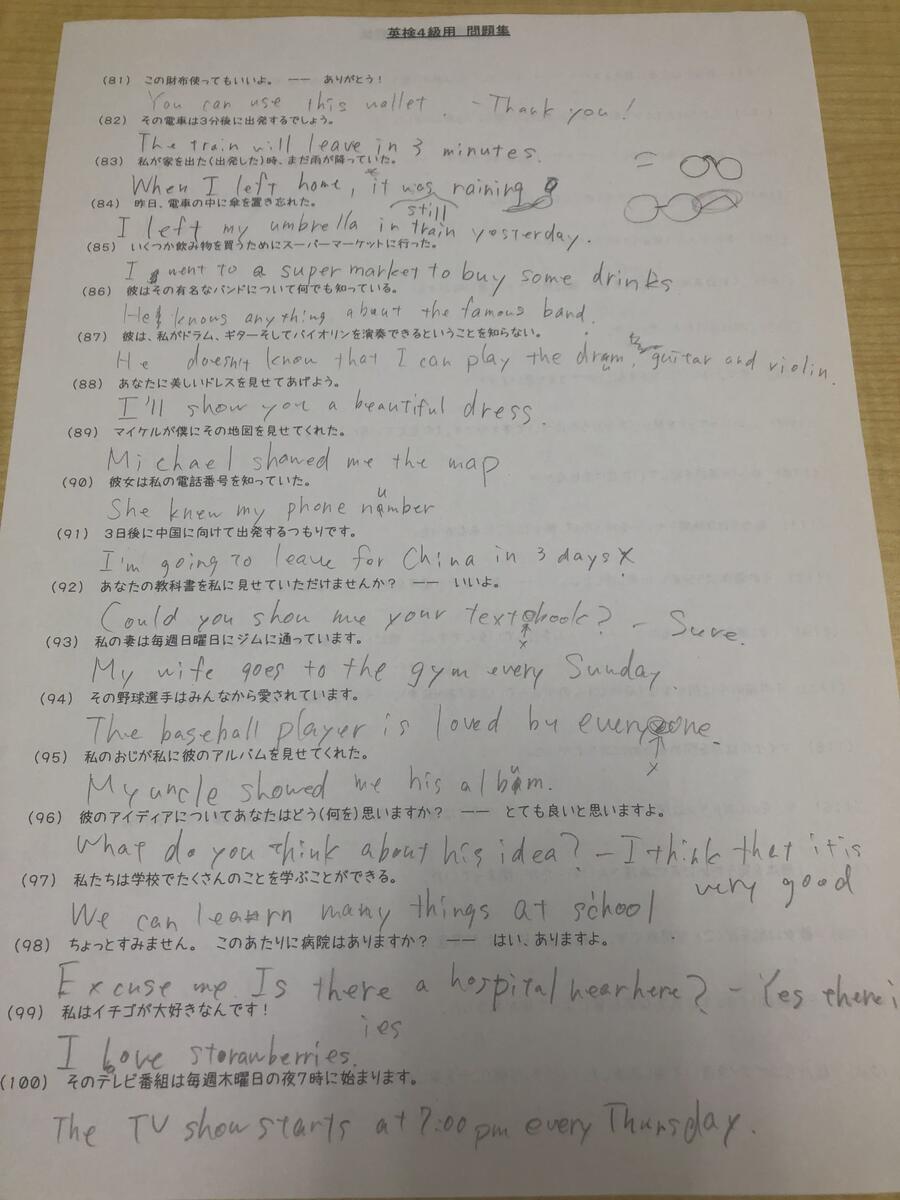 英検4級用 問題集
(81) この財布使ってもいいよ。 ―― ありがとう!
You can use this wallet. - Thank you!
(82) その電車は3分後に出発するでしょう。
The train will leave in 3 minutes.
(83) 私が家を出た(出発した)時、まだ雨が降っていた。
When I left home, it was raining
still
(84) 昨日、電車の中に傘を置き忘れた。
I left my umbrella in train yesterday.
(85) いくつか飲み物を買うためにスーパーマーケットに行った。
I went to a super market to buy some drinks
(86) 彼はその有名なバンドについて何でも知っている。
He knows anything about the famous band.
(87) 彼は、私がドラム、ギターそしてバイオリンを演奏できるということを知らない。
He doesn't know that I can play the drum, guitar and violin.
(88) あなたに美しいドレスを見せてあげよう。
I'll show you a beautiful dress.
(89) マイケルが僕にその地図を見せてくれた。
Michael showed me the map
(90) 彼女は私の電話番号を知っていた。
She knew my phone number
(91) 3日後に中国に向けて出発するつもりです。
I'm going to leave for China in 3 days
(92) あなたの教科書を私に見せていただけませんか? ―― いいよ。
Could you show me your textbook? - Sure.
(93) 私の妻は毎週日曜日にジムに通っています。
My wife goes to the gym every Sunday
(94) その野球選手はみんなから愛されています。
The baseball player is loved by everyone.
(95) 私のおじが私に彼のアルバムを見せてくれた。
My uncle showed me his album.
(96) 彼のアイディアについてあなたはどう(何を)思いますか? ―― とても良いと思いますよ。
What do you think about his idea? - I think that it is
very good
(97) 私たちは学校でたくさんのことを学ぶことができる。
We can learn many things at school
(98) ちょっとすみません。 このあたりに病院はありますか? ―― はい、ありますよ。
Excuse me. Is there a hospital near here? - Yes there i
(99) 私はイチゴが大好きなんです!
ies
I love storawberries.
(100) そのテレビ番組は毎週木曜日の夜7時に始まります。
The TV show starts at 7:00 pm every Thursday.